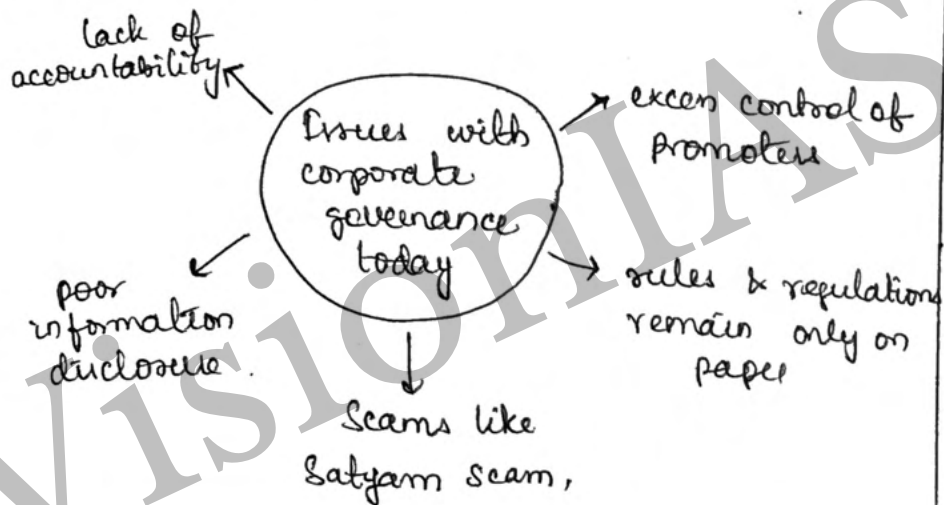 lack of
accountability
Issues with
corporate
governance
today
excess control of
Promoters
poor
information
disclosure.
rules & regulation
remain only on
paper
Scams like
Satyam scam,
VisionIAS